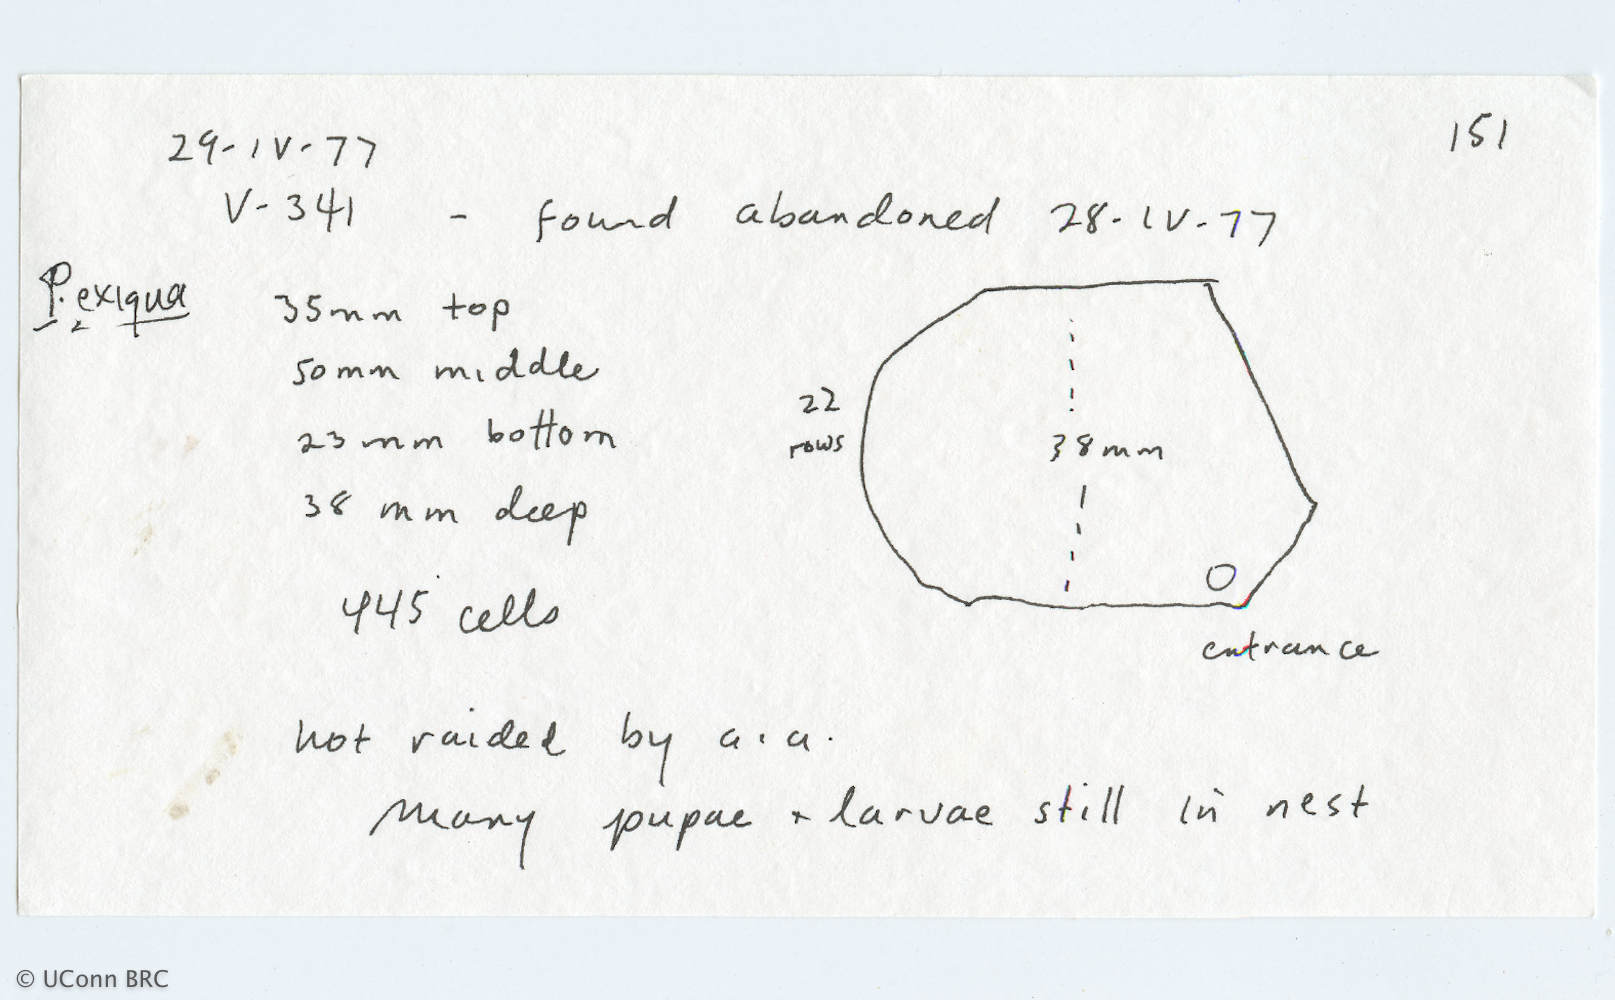 151
29-IV-77
V-341 - found abandoned 28-IV-77
P. exiqua
35mm top
50mm middle
23mm bottom
38 mm deep
445 cells
22
rows
38mm
entrance
not raided by a.a.
Many pupae + larvae still in nest
© UConn BRC